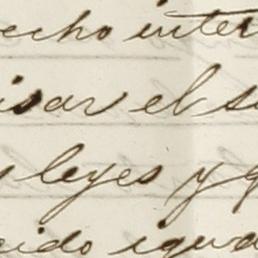 echo inter
isar el s
leyes y q
cido igua